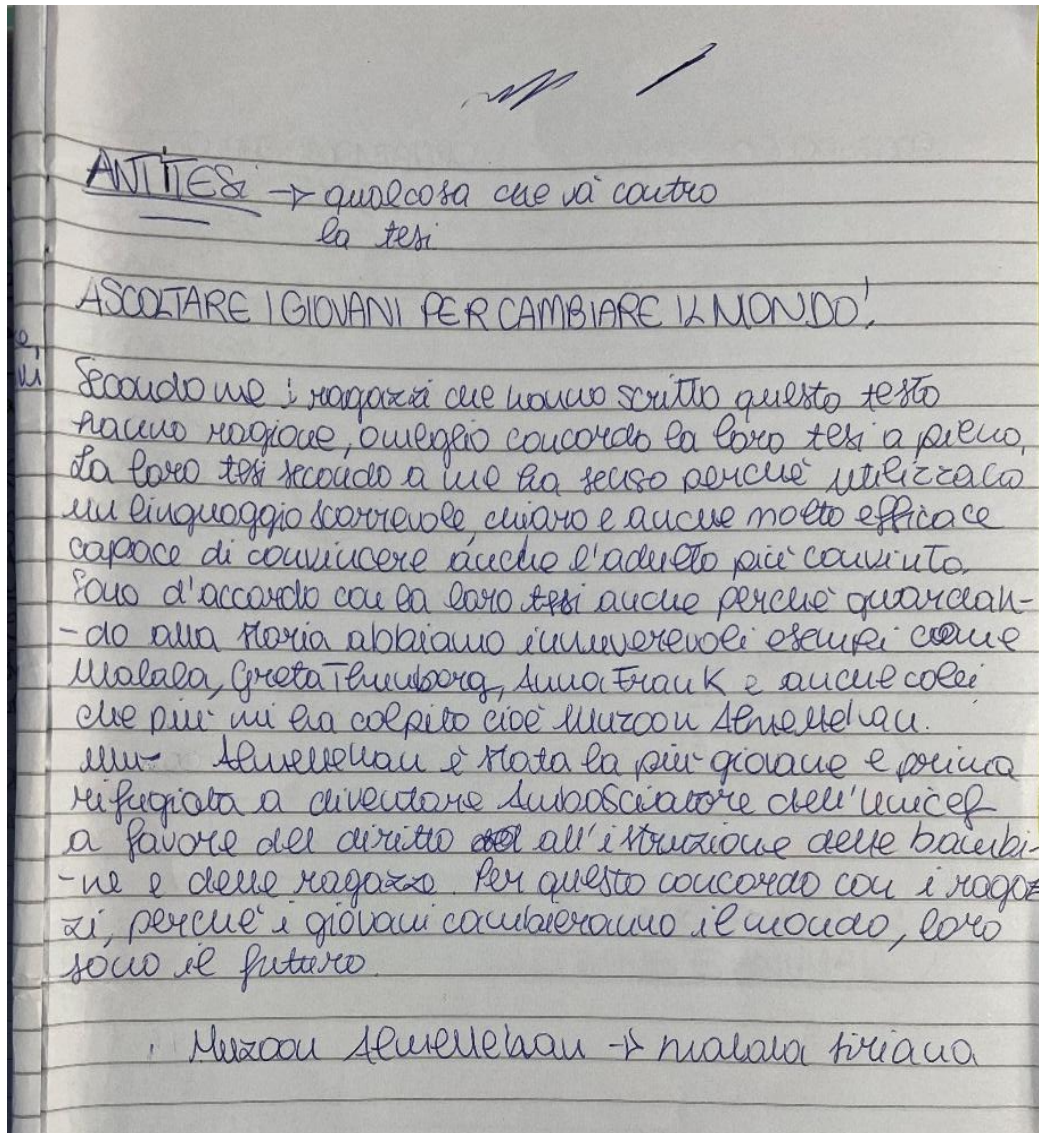 ANTITESI → qualcosa che và contro
la tesi
ASCOLTARE I GIOVANI PER CAMBIARE IL MONDO!
Secondo me i ragazzi che hanno scritto questo testo
hanno ragione, o meglio concordo la loro tesi a pieno.
La loro tesi secondo a me ha senso perchè utilizzano
un linguaggio scorrevole, chiaro e anche molto efficace
capace di convincere anche l'adulto più convinto.
Sono d'accordo con la loro tesi anche perchè guardan-
-do alla storia abbiamo innumerevoli esempi come
Malala, Greta Thumborg, Anna Frank e anche colei
che più mi ha colpito cioè Muzoon Almellehan.
Mu- Almellehan è stata la più giovane e prima
rifugiata a diventare Ambasciatore dell'Unicef
a favore del diritto all'istruzione delle bambi-
-ne e delle ragazze. Per questo concordo con i ragaz
zi, perchè i giovani cambieranno il mondo, loro
sono il futuro.
Muzoon Almellehan → malala siriana